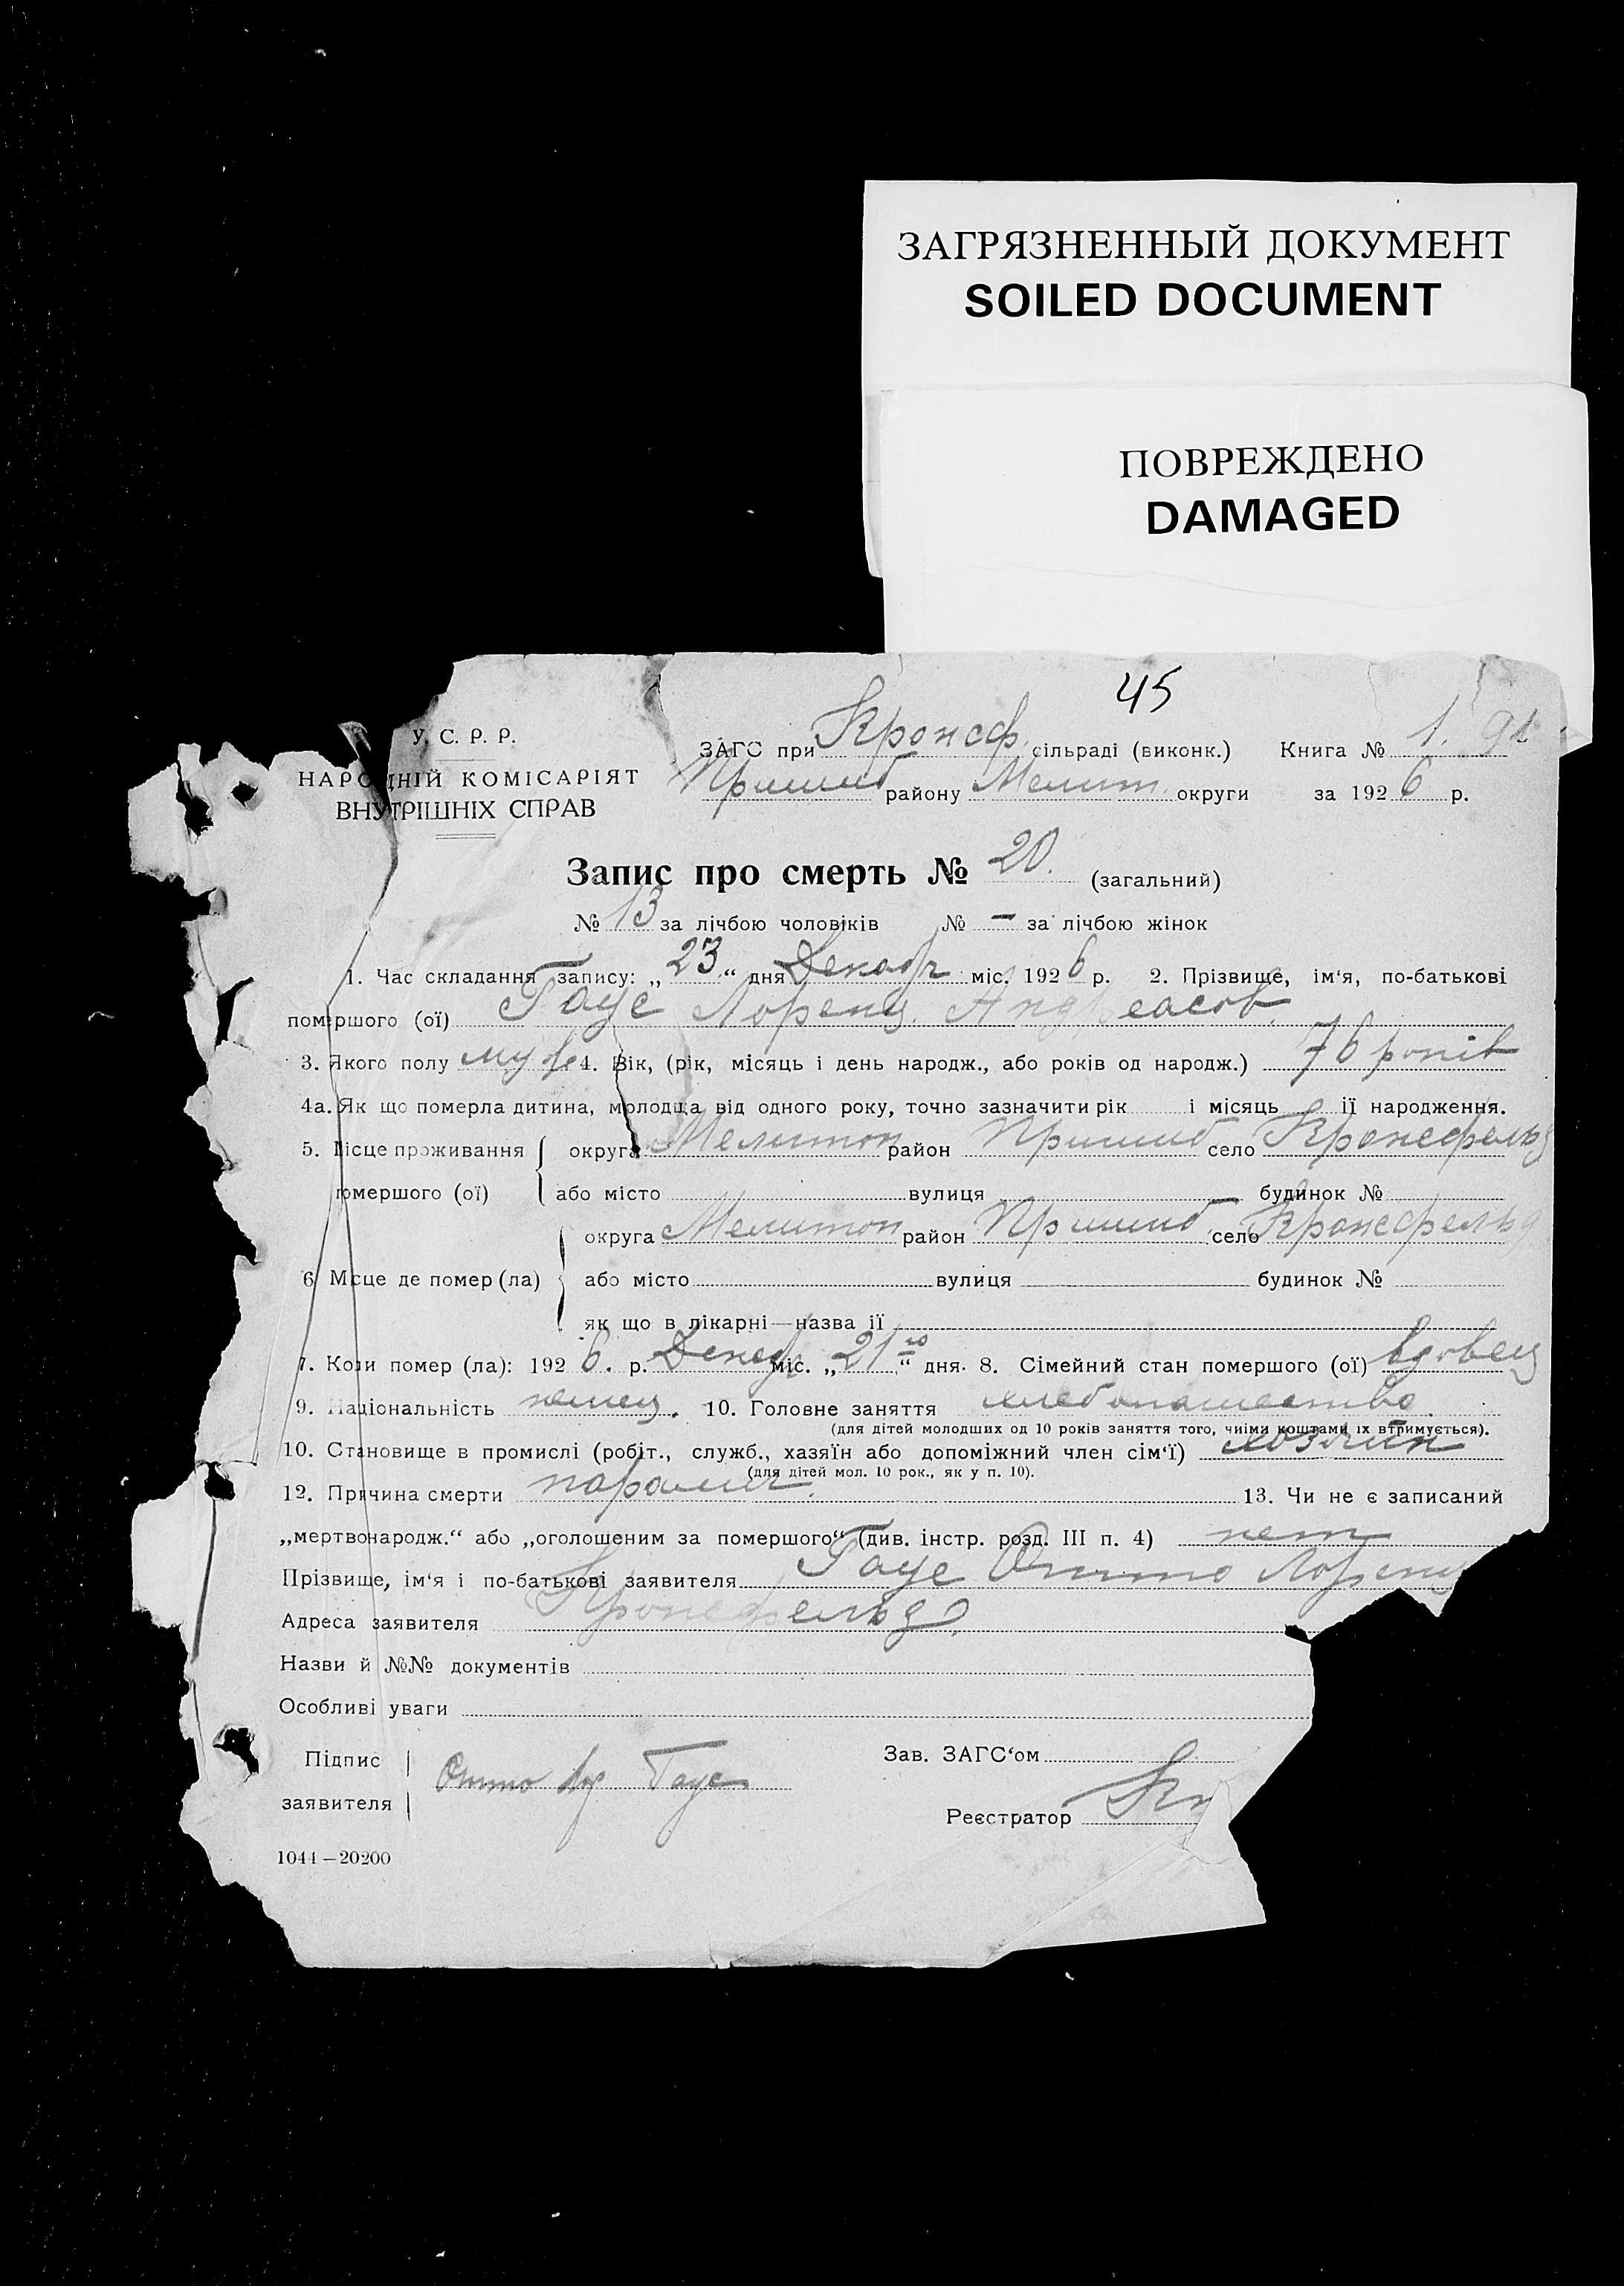 ЗАГРЯЗНЕННЫЙ ДОКУМЕНТ
SOILED DOCUMENT
ПОВРЕЖДЕНО
DAMAGED
45
У. С. Р. Р.
НАРОДНІЙ КОМІСАРІЯТ
ВНУТРІШНІХ СПРАВ
ЗАГС при Кронсф. сільраді (виконк.) Книга № 1. 91
Пришиб району Мелит. округи за 1926 р.
Запис про смерть № 20. (загальний)
№ 13 за лічбою чоловіків № — за лічбою жінок
1. Час складання запису: „23“ дня Декабр міс. 1926 р. 2. Прізвище, ім‘я, по-батькові
помершого (ої) Гаус Лоренц. Андреасов.
3. Якого полу муж 4. Вік, (рік, місяць і день народж., або років од народж.) 76 років
4а. Як що померла дитина, молодша від одного року, точно зазначити рік і місяць її народження.
5. Місце проживання округа Мелитоп район Пришиб село Кронсфельд
помершого (ої) або місто вулиця будинок №
округа Мелитоп район Пришиб село Кронсфельд
6 Місце де помер (ла) або місто вулиця будинок №
як що в лікарні—назва її
7. Коли помер (ла): 1926. р. Декаб міс. „21го“ дня. 8. Сімейний стан помершого (ої) вдовец
9. Національність немец. 10. Головне заняття хлебопашество.
(для дітей молодших од 10 років заняття того, чиїми коштами їх втримується).
10. Становище в промислі (робіт., служб., хазяїн або допоміжний член сім‘ї) хозяин
(для дітей мол. 10 рок., як у п. 10).
12. Причина смерти паралич. 13. Чи не є записаний
„мертвонародж.“ або „оголошеним за помершого“ (див. інстр. розд. III п. 4) нет
Прізвище, ім‘я і по-батькові заявителя Гаус Отто Лоренц
Адреса заявителя Кронсфельд.
Назви й №№ документів
Особливі уваги
Підпис Отто Лор Гаус Зав. ЗАГС‘ом
заявителя Реєстратор
1044—20200